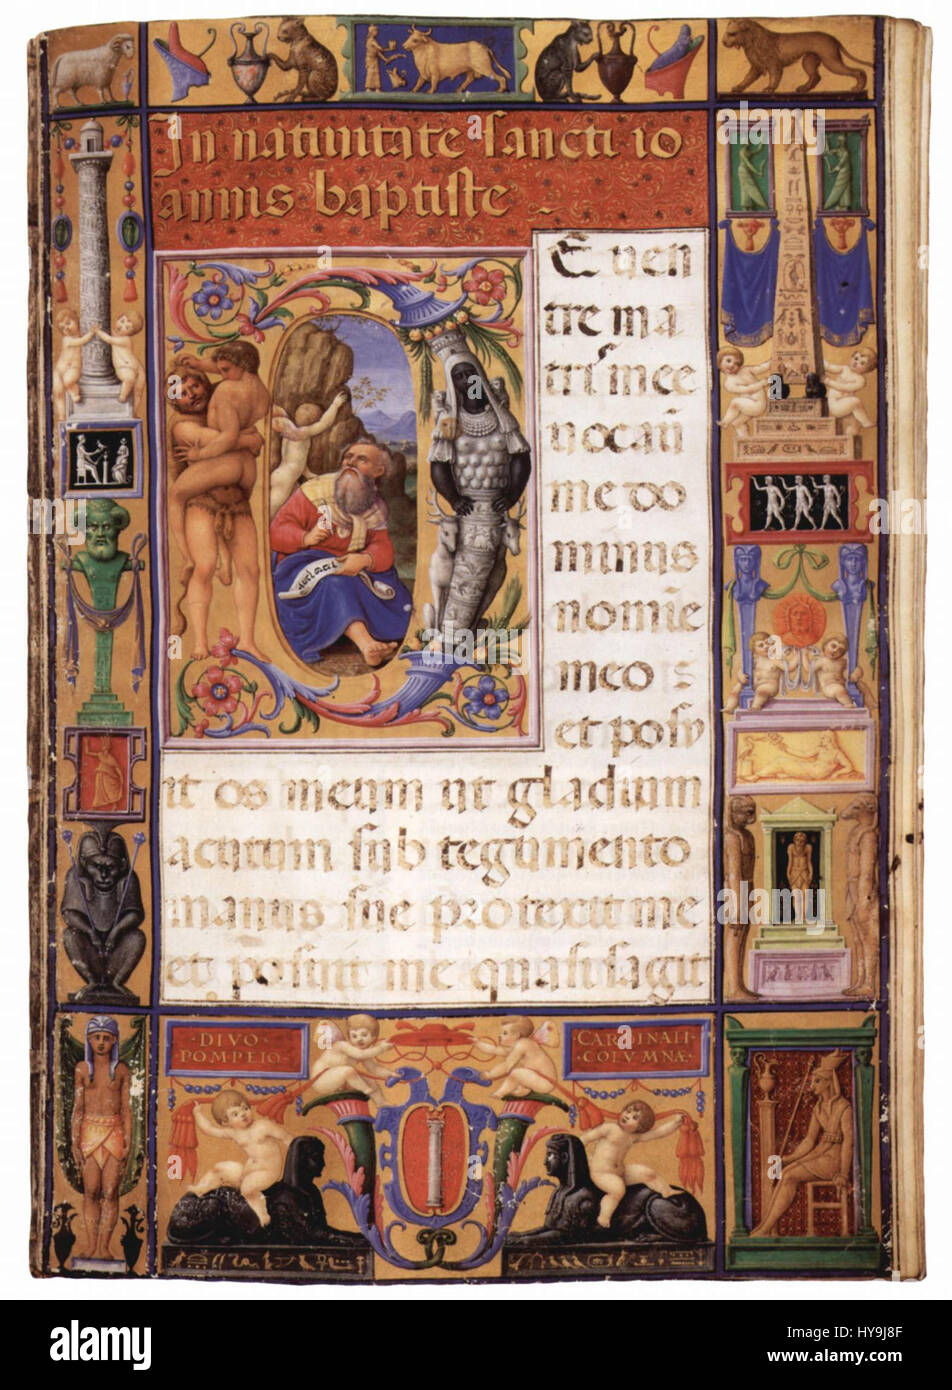 In natiuitate sancti io
annis baptiste
E uen
tre ma
tris mee
uocaũ
me do
minus
nomĩe
meo :
et posu
it os meum ut gladium
acutum sub tegumento
manus sue protexit me
et posuit me quasi sagit
·DIVO·
POMPEIO·
CARDINALI·
COLVMNÆ·
alamy
Image ID: HY9J8F
www.alamy.com